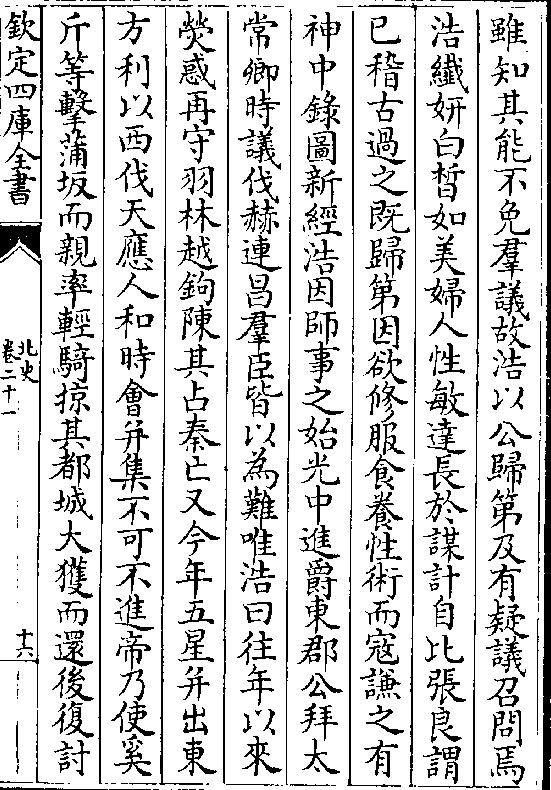 雖知其能不免羣議故浩以公歸第及有疑議召問焉
浩纎妍白晳如美婦人性敏達長於謀計自比張良謂
已稽古過之既歸第因欲修服食養性術而寇謙之有
神中錄圖新經浩因師事之始光中進爵東郡公拜太
常卿時議伐赫連昌羣臣皆以為難唯浩曰往年以來
熒惑再守羽林越鉤陳其占秦亡又今年五星并出東
方利以西伐天應人和時會并集不可不進帝乃使奚
斤等擊蒲坂而親率輕騎掠其都城大獲而還後復討
欽定四庫全書
北史
卷二十一
十六